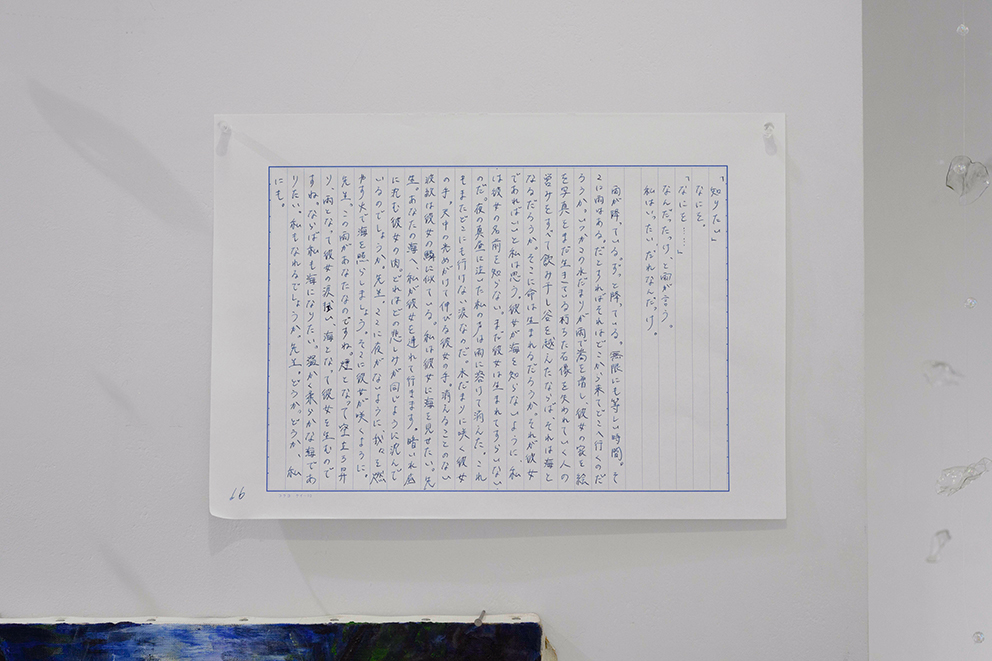 「知りたい」
なにを。
「なにを……」
なんだったけ、と雨が言う。
私はいったい、だれなんだっけ。
雨が降っている。ずっと降っている。無限にも等しい時間。そ
こに雨はある。だとすればそれはどこから来てどこへ行くのだ
ろうか。いつかこの水だまりが雨で嵩を増し、彼女の家を絵
を写真とまだ生きている朽ちた石像を失われていく人の
営みをすべて飲み干し谷を越えたならば、それは海と
なるだろうか。そこに命は生まれるだろうか。それが彼女
であればいいと私は思う。彼女が海を知らないように、私
は彼女の名前を知らない。まだ彼女は生まれてすらいない
のだ。夜の真昼に泣いた私の声は雨に溶けて消えた。これ
もまたどこにも行けない涙なのだ。水だまりに咲く彼女
の手。天中の光めがけて伸びる彼女の手。消えることのない
波紋は彼女の鱗に似ている。私は彼女に海を見せたい。先
生。あなたの海へ、私が彼女を連れて行きます。暗い水底
に沈む彼女の肉。どれほどの悲しみが同じように沈んで
いるのでしょうか。先生。ここに夜がないように、我々を燃
やす火で海を照らしましょう。そこに彼女が咲くように。
先生。この雨があなたなのですね。煙となって空を昇
り、雨となって彼女の涙 い、海となって彼女を生むので
すね。ならば私も海になりたい。 かく柔らかな海であ
りたい。私もなれるでしょうか。先生。どうか、どうか、私
にも。
16